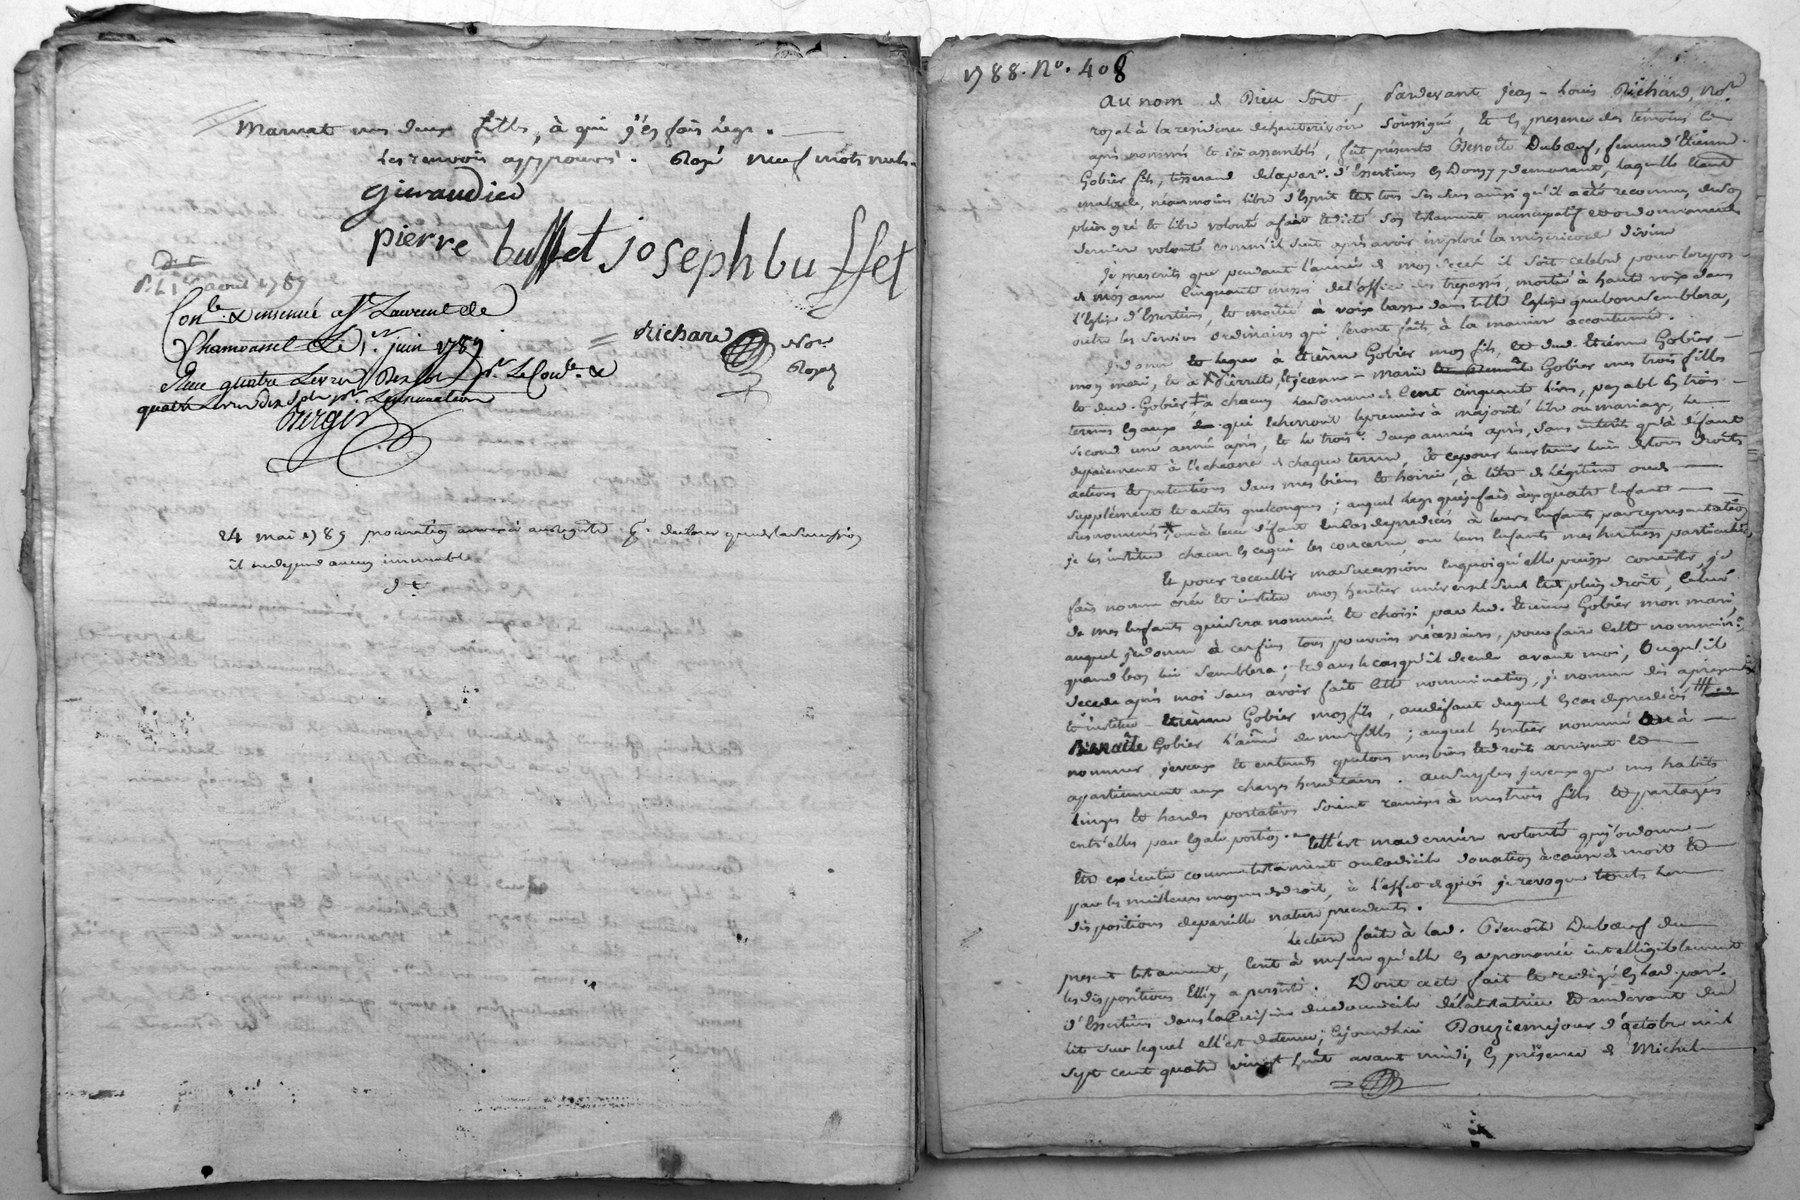 Marnat mes deux filles, à qui j'en fais legs.
Les renvois approuvés. Rayé neuf mots nuls.
giraudier
pierre buffet joseph buffet
Dt
avril 1789
Conle. & insinué a St Laurent de
Chamousset Le 1er. juin 1789
quatre Livres Dix sols pr. Le Conle. &
quatre Livres dix sols pr. L'insinuation
Richard Nore
Royal
24 mai 1789
il ne depend aucun immeuble
dt
1788. No. 408
Au nom de Dieu soit, Pardevant Jean-Louis Richard, Nore
royal à la residence de soussigné, et en presence des temoins ci
après nommés et ici assemblés, fut présente Benoîte Dubœuf, femme d'Etienne
Gobier fils, tisserand de la par. d'Essertines en Donzy y demeurant, laquelle étant
malade, néanmoins libre d'esprit et de tous ses sens ainsi qu'il a été reconnu, de son
plein gré et libre volonté a fait et dicté son testament nuncupatif et ordonnance de
derniere volonté comm'il suit après avoir imploré la misericorde divine
Je prescrits que pendant l'année de mon decès il soit celebré pour le repos
de mon ame cinquante messes de l'office des trepassés, moitié à haute voix dans
l'Eglise d'Essertines, et moitié à voix basse dans telle Eglise que bon semblera,
outre les services ordinaires qui seront faits à la maniere accoutumée.
Je donne et legue à Etiënne Gobier mon fils, et dud. Etiënne Gobier
mon mari, et à Pierrette, et jeanne-Marie Gobier mes trois filles
et dud. Gobier, à chacun la somme de cent cinquante livres, payable en trois
termes egaux qui echerront le premier à majorité libre ou mariage, le
second une année après, et le trois. deux années après, sans intérêt qu'à défaut
de paiement à l'echeance de chaque terme, et ce pour leur tenir lieu de tous droits
actions et pretentions dans mes biens et hoirie, à titre de légitime ou de
supplément et autres quelconques; auquel legs que je fais à mes quatre enfants
susnommés, ou à leur défaut en cas de predecès à leurs enfants par representation
je les institue chacun en ce qui les concerne, ou leurs enfants mes heritiers particuliers,
Et pour receuillir ma succession en quoi qu'elle puisse consister, j'ai
fais nomme crée et institue mon heritier universel seul et de plein droit, celui
de mes enfants qui sera nommé et choisi par led. Etiënne Gobier mon mari,
auquel je donne à ces fins tous pouvoirs nécessaires, pour faire cette nomination,
quand bon lui semblera; et dans le cas qu'il decede avant moi, ou qu'il
decede après moi sans avoir fait cette nomination, je nomme dès apresent
et institue Etiënne Gobier mon fils, au défaut duquel en cas de predecès
Benoîte Gobier l'ainée de mes filles; auquel heritier nommé ou à
nommer, je veux et entends que tous mes biens et droits arrivent et
apartiennent aux charges hereditaires. au surplus je veux que mes habits
linges et hardes portatives soient remises à mes trois filles et partagés
entr'elles par egale portion. telle est ma derniere volonté que j'ordonne
être exécutée comme testament ou codicile donation à cause de mort et
par les meilleurs moyens de droit, à l'effet de quoi je revoque toutes
dispositions de pareille nature precedentes.
Lecture faite à lad. Benoîte Dubœuf du
present testament, ecrit à mesure qu'elle en a prononcé intelligiblement
les dispositions elle y a persisté. Dont acte fait et redigé en lad. par.
d'Essertines dans la Cuisine du domicile de la testatrice et au devant du
lit sur lequel ell'est detenue; cejourdhui Douziemejour d'octobre mil
sept cent quatre vingt huit avant midi, en présence de Michel